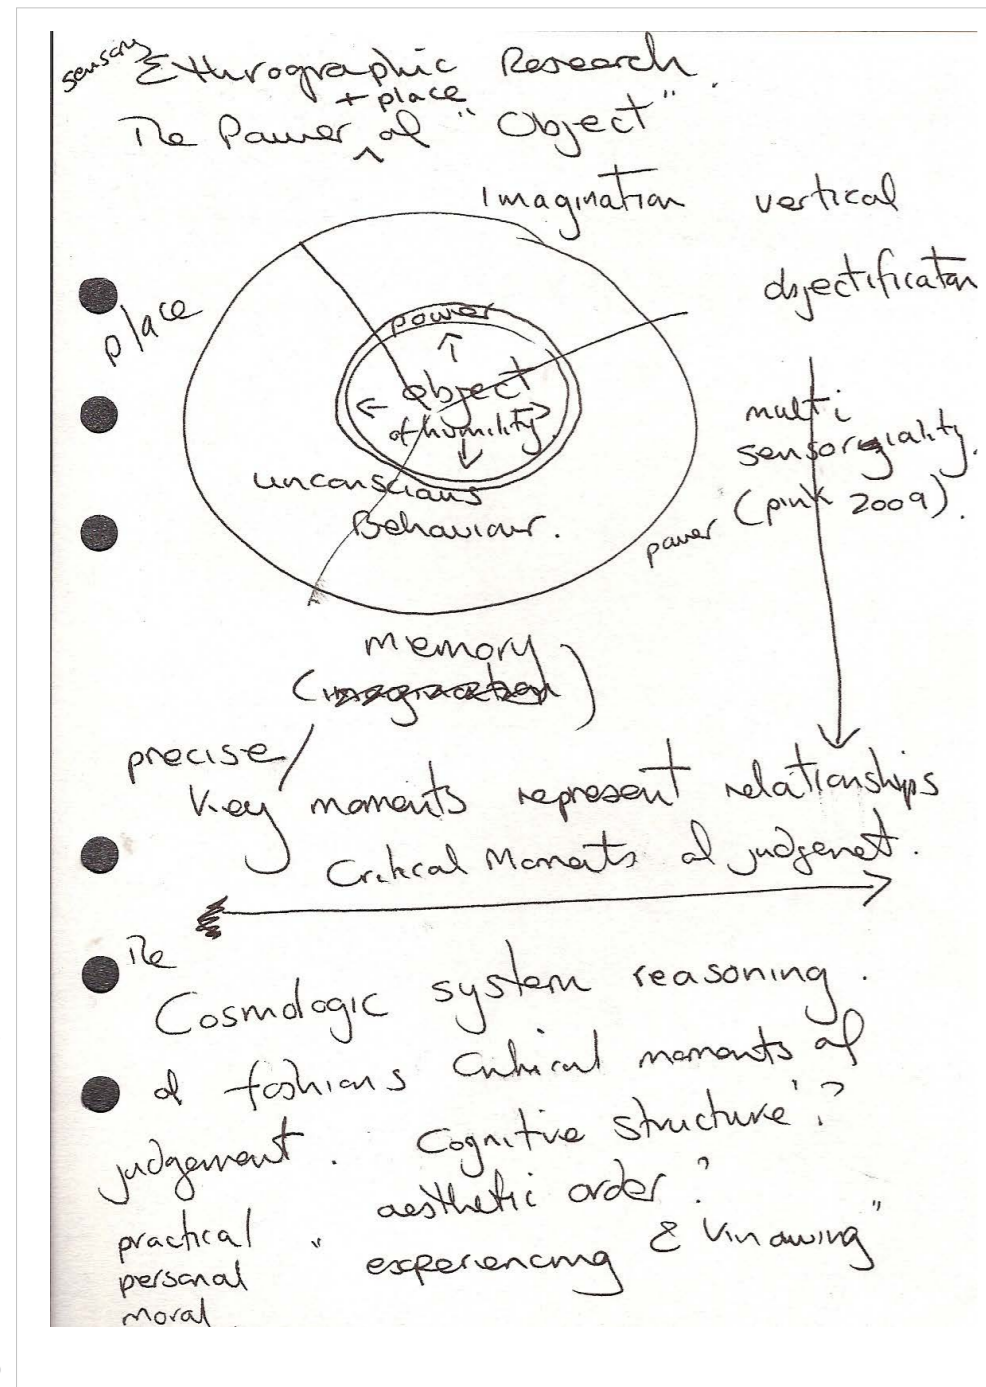 sensory Ethnographic Research.
+ place
The Power ^ of "Object"
Imagination vertical
objectification
place
power
object
of humility
multi
sensoriality.
(pink 2009).
unconscious
Behaviour.
power
memory
(imagination)
precise/
Key moments represent relationships
Critical Moments of judgenet.
The
Cosmologic system reasoning.
of fashions Critical moments of
judgement. Cognitive structure'?
aesthetic order?
practical " experiencing & Knowing"
personal
moral